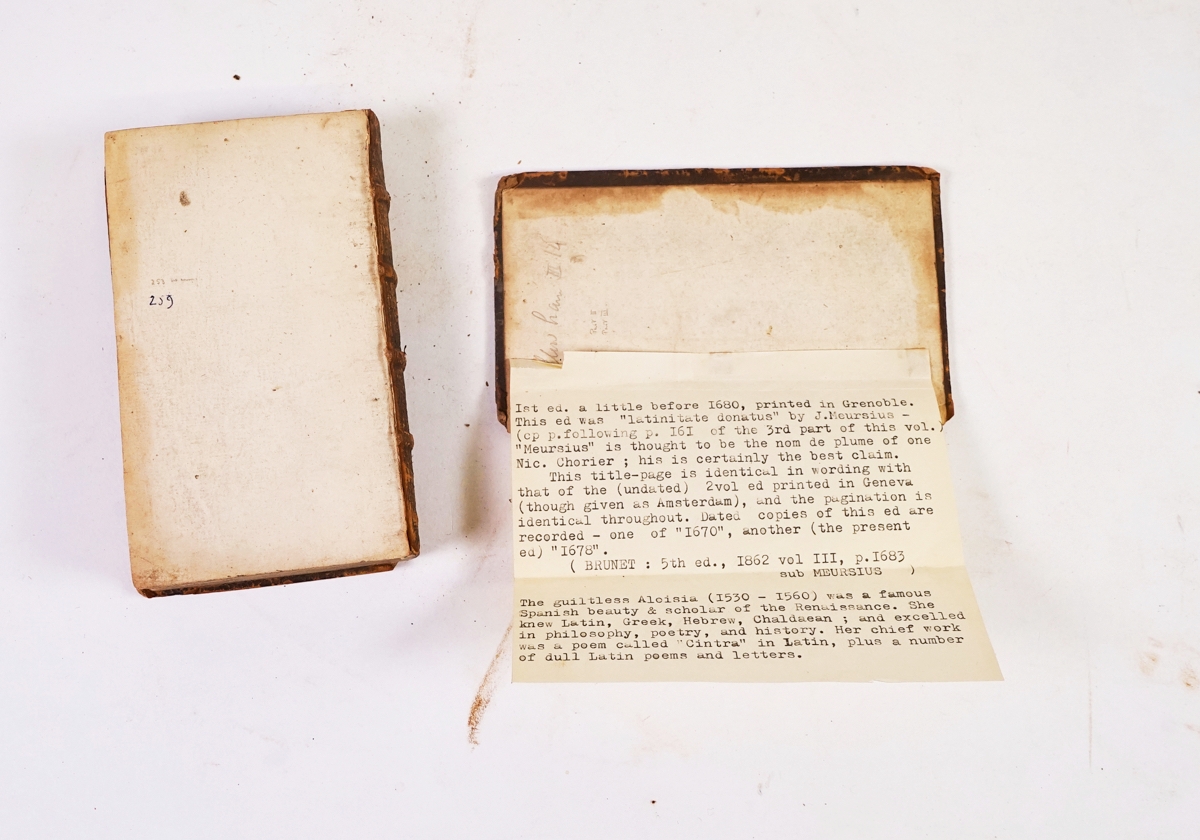 259
Part II
Part III
Ist ed. a little before I680, printed in Grenoble.
This ed was "latinitate donatus" by J.Meursius -
(cp p.following p. I6I of the 3rd part of this vol.)
"Meursius" is thought to be the nom de plume of one
Nic. Chorier ; his is certainly the best claim.
This title-page is identical in wording with
that of the (undated) 2vol ed printed in Geneva
(though given as Amsterdam), and the pagination is
identical throughout. Dated copies of this ed are
recorded - one of "I670", another (the present
ed) "I678".
( BRUNET : 5th ed., I862 vol III, p.I683
sub MEURSIUS )
The guiltless Aloisia (I530 - I560) was a famous
Spanish beauty & scholar of the Renaissance. She
knew Latin, Greek, Hebrew, Chaldaean ; and excelled
in philosophy, poetry, and history. Her chief work
was a poem called "Cintra" in Latin, plus a number
of dull Latin poems and letters.